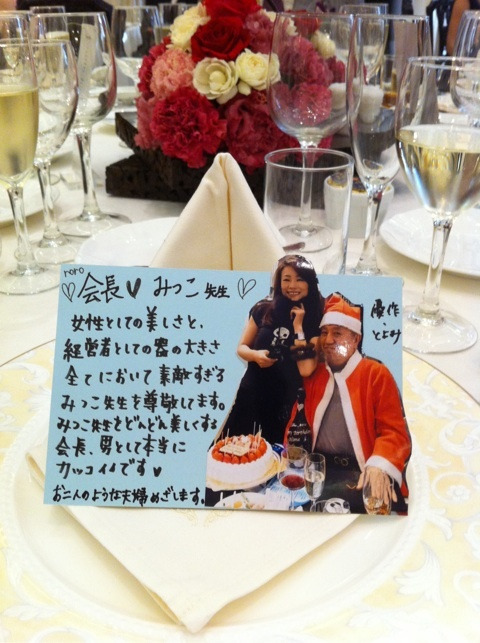 roro
会長♥ みつこ先生♡
女性としての美しさと、
経営者としての器の大きさ
全てにおいて素敵すぎる
みつこ先生を尊敬してます。
みつこ先生をどんどん美しくする
会長、男として本当に
カッコイイです♥
お二人のような夫婦めざします。
・とよみ